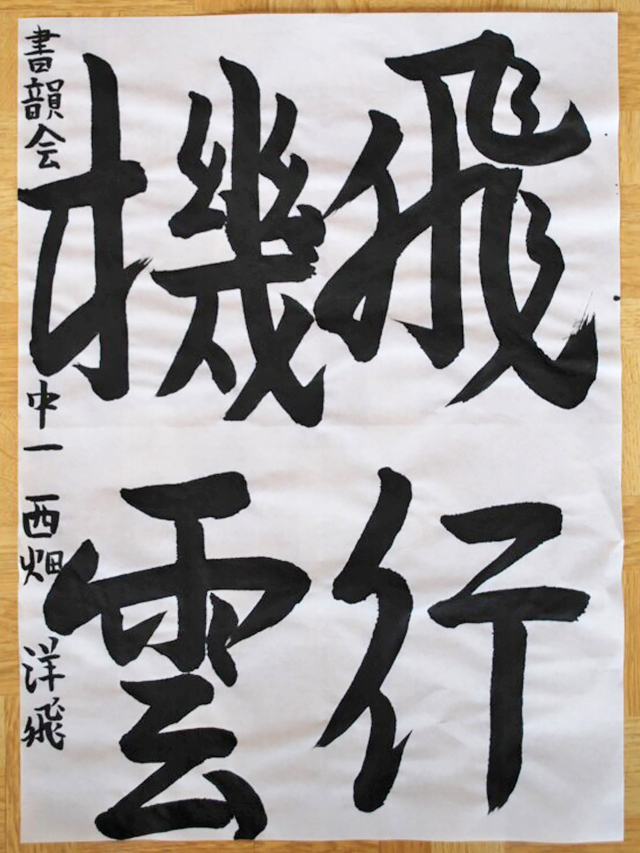 飛行
機雲
書韻会 中一 西畑 洋飛